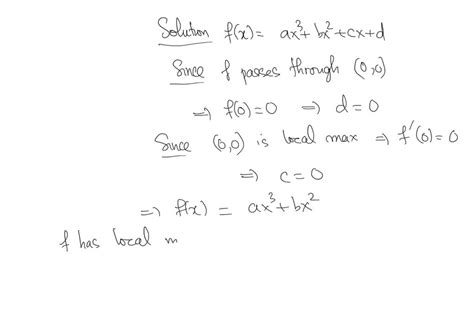 Solution f(x) = ax³+ bx²+cx+d
Since f passes through (0,0)
⇒ f(0)=0 ⇒ d=0
Since (0,0) is local max ⇒ f'(0)=0
⇒ c=0
⇒ f(x) = ax³+bx²
f has local m